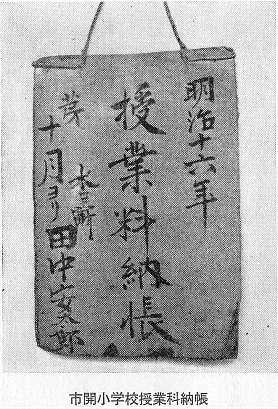 明治十六年
授業料納帳
十月ヨリ
田中安太郎
市開小学校授業料納帳